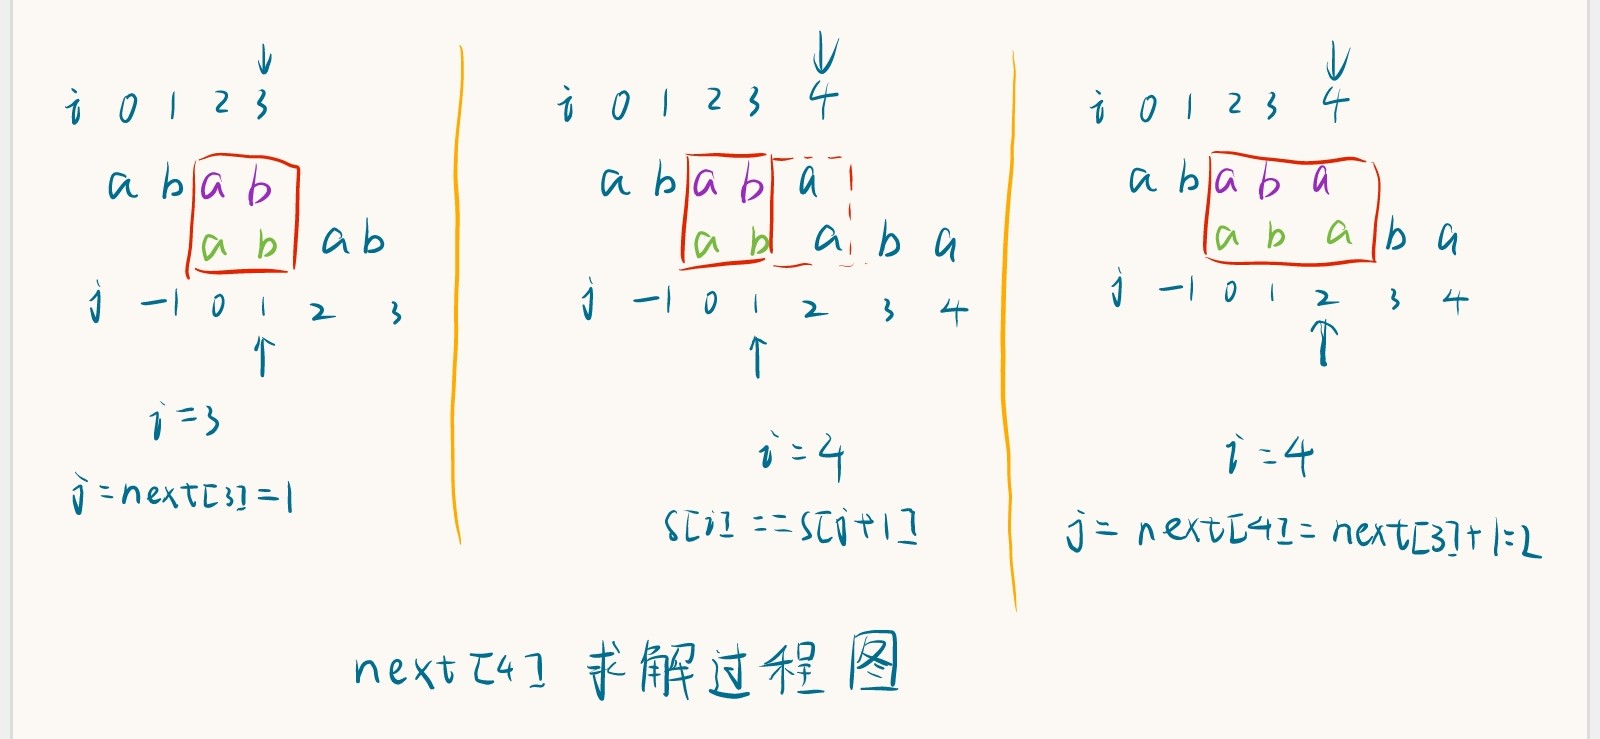 i 0 1 2 3
a b a b
a b a b
j -1 0 1 2 3
i=3
j=next[3]=1
i 0 1 2 3 4
a b a b a
a b a b a
j -1 0 1 2 3 4
i=4
s[i]==s[j+1]
i 0 1 2 3 4
a b a b a
a b a b a
j -1 0 1 2 3 4
i=4
j=next[4]=next[3]+1=2
next[4] 求解过程图